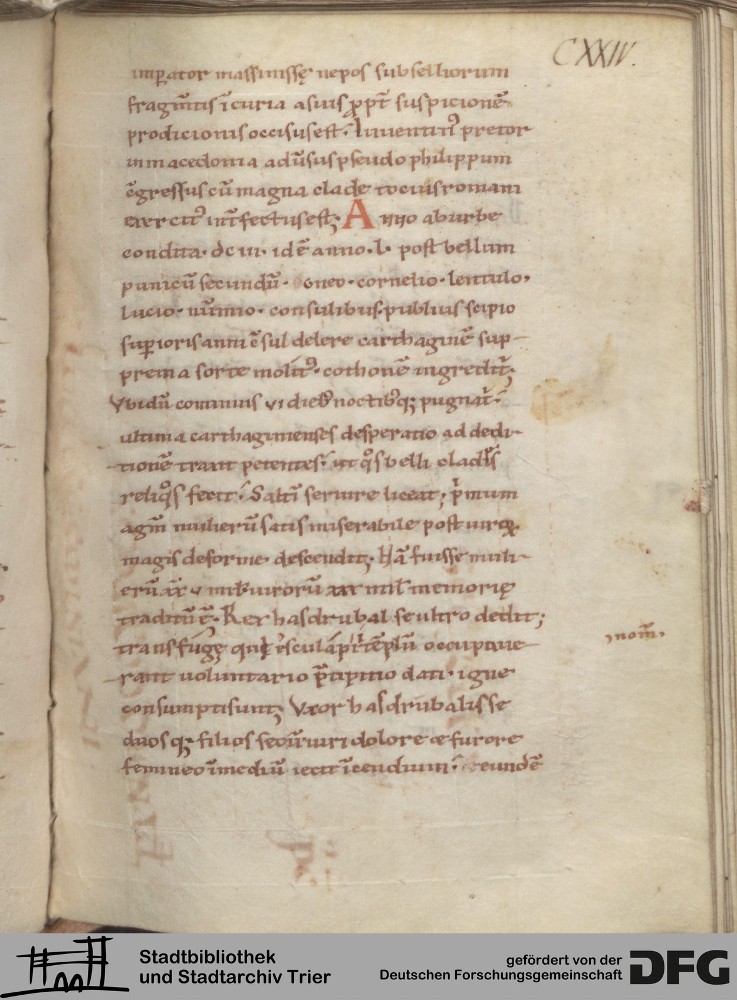 CXXIV.
imꝑator massinissę nepos subselliorum
fragm̄tis ī curia a suis ꝓpt̄ suspicionē
prodicionis occisus est. Iuuentiꝰ pretor
in macedonia adūsus pseudo philippum
ēgressus cū magna clade tocius romani
exercitꝰ int̄fectus est; Anno ab urbe
condita· dc iii· idē anno· l· post bellum
punicū secundū· gneo· cornelio· lentulo,
lucio· mūmio· consulibus. publius scipio
suꝑioris anni c̄sul delere carthaginē sup-
prema sorte molitꝰ· cothonē ingredit̄;
Vbi dū continuis vi dieb; noctibꝰq; pugnat̄·
ultima carthaginenses desperatio ad dedi-
tionē traxit petentes. ut qͦs belli clades
reliqͦs fecit. Saltī seruire liceat; pͥmum
agm̄ mulierū satis miserabile post uiroꝝ
magis deforme descendit; Nā fuisse muli-
erū xx v mil· uirorū xxx mil· memorię
traditū ē· Rex hasdrubal se ultro dedit;
transfugę qui esculapii tēplū occupaue-
rant uoluntario p̄cipitio dati· igne
consumpti sunt; Vxor hasdrubalis se
duosq; filios secū uiri dolore & furore
femineo ī mediū iecit īcendium· eundē
,nom̄.
Stadtbibliothek
und Stadtarchiv Trier
gefördert von der
Deutschen Forschungsgemeinschaft
DFG